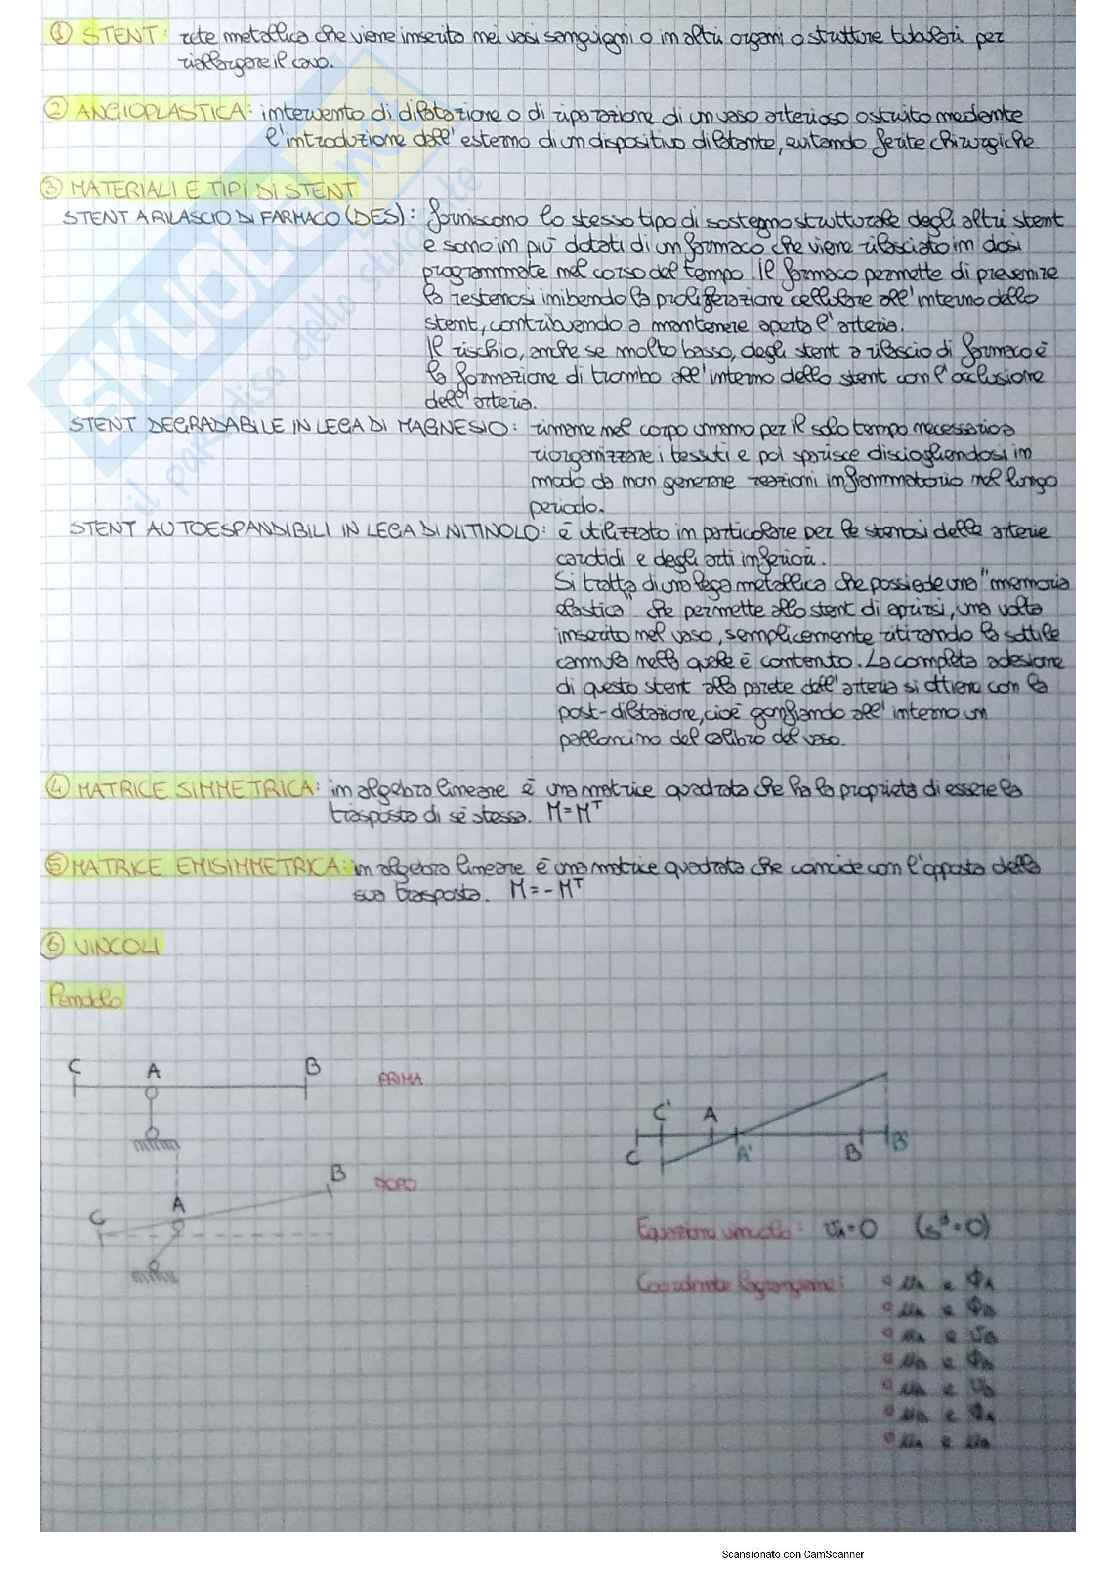 ① STENT: rete metallica che viene inserito nei vasi sanguigni o in altri organi o strutture tubulari per
riallargare il cavo.
② ANGIOPLASTICA: intervento di dilatazione o di riparazione di un vaso arterioso ostruito mediante
l'introduzione dall'esterno di un dispositivo dilatante, evitando ferite chirurgiche
③ MATERIALI E TIPI DI STENT
STENT A RILASCIO DI FARMACO (DES): forniscono lo stesso tipo di sostegno strutturale degli altri stent
e sono in più dotati di un farmaco che viene rilasciato in dosi
programmate nel corso del tempo. Il farmaco permette di prevenire
la restenosi inibendo la proliferazione cellulare all'interno dello
stent, contribuendo a mantenere aperta l'arteria.
Il rischio, anche se molto basso, degli stent a rilascio di farmaco è
la formazione di trombo all'interno dello stent con l'occlusione
dell'arteria.
STENT DEGRADABILE IN LEGA DI MAGNESIO: rimane nel corpo umano per il solo tempo necessario a
riorganizzare i tessuti e poi sparisce disciogliendosi in
modo da non generare reazioni infiammatorio nel lungo
periodo.
STENT AUTOESPANDIBILI IN LEGA DI NITINOLO: è utilizzato in particolare per le stenosi delle arterie
carotidi e degli arti inferiori.
Si tratta di una lega metallica che possiede una "memoria
elastica" che permette allo stent di aprirsi, una volta
inserito nel vaso, semplicemente ritirando la sottile
cannula nella quale è contento. La completa adesione
di questo stent alla parete dell'arteria si ottiene con la
post-dilatazione, cioè gonfiando all'interno un
palloncino del calibro del vaso.
④ MATRICE SIMMETRICA: in algebra lineare è una matrice quadrata che ha la proprietà di essere la
trasposta di sé stessa. M=Mᵀ
⑤ MATRICE EMISIMMETRICA: in algebra lineare è una matrice quadrata che coincide con l'opposta della
sua trasposta. M=-Mᵀ
⑥ VINCOLI
Pendolo
C A B PRIMA
C' A
C A' B B'
B DOPO
C A
Equazione vincolo: vA=0 (sᵈ=0)
Coordinate lagrangiane: uA e ΦA
uA e ΦB
uA e vB
uB e ΦB
uB e vB
uB e ΦA
uA e uB
SKUOLA.net
il paradiso dello studente
Scansionato con CamScanner